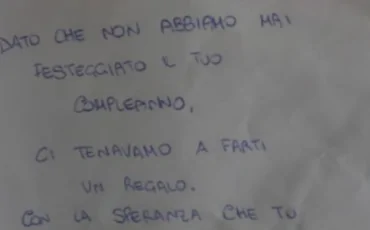 DATO CHE NON ABBIAMO MAI
FESTEGGIATO IL TUO
COMPLEANNO,
CI TENAVAMO A FARTI
UN REGALO.
CON LA SPERANZA CHE TU